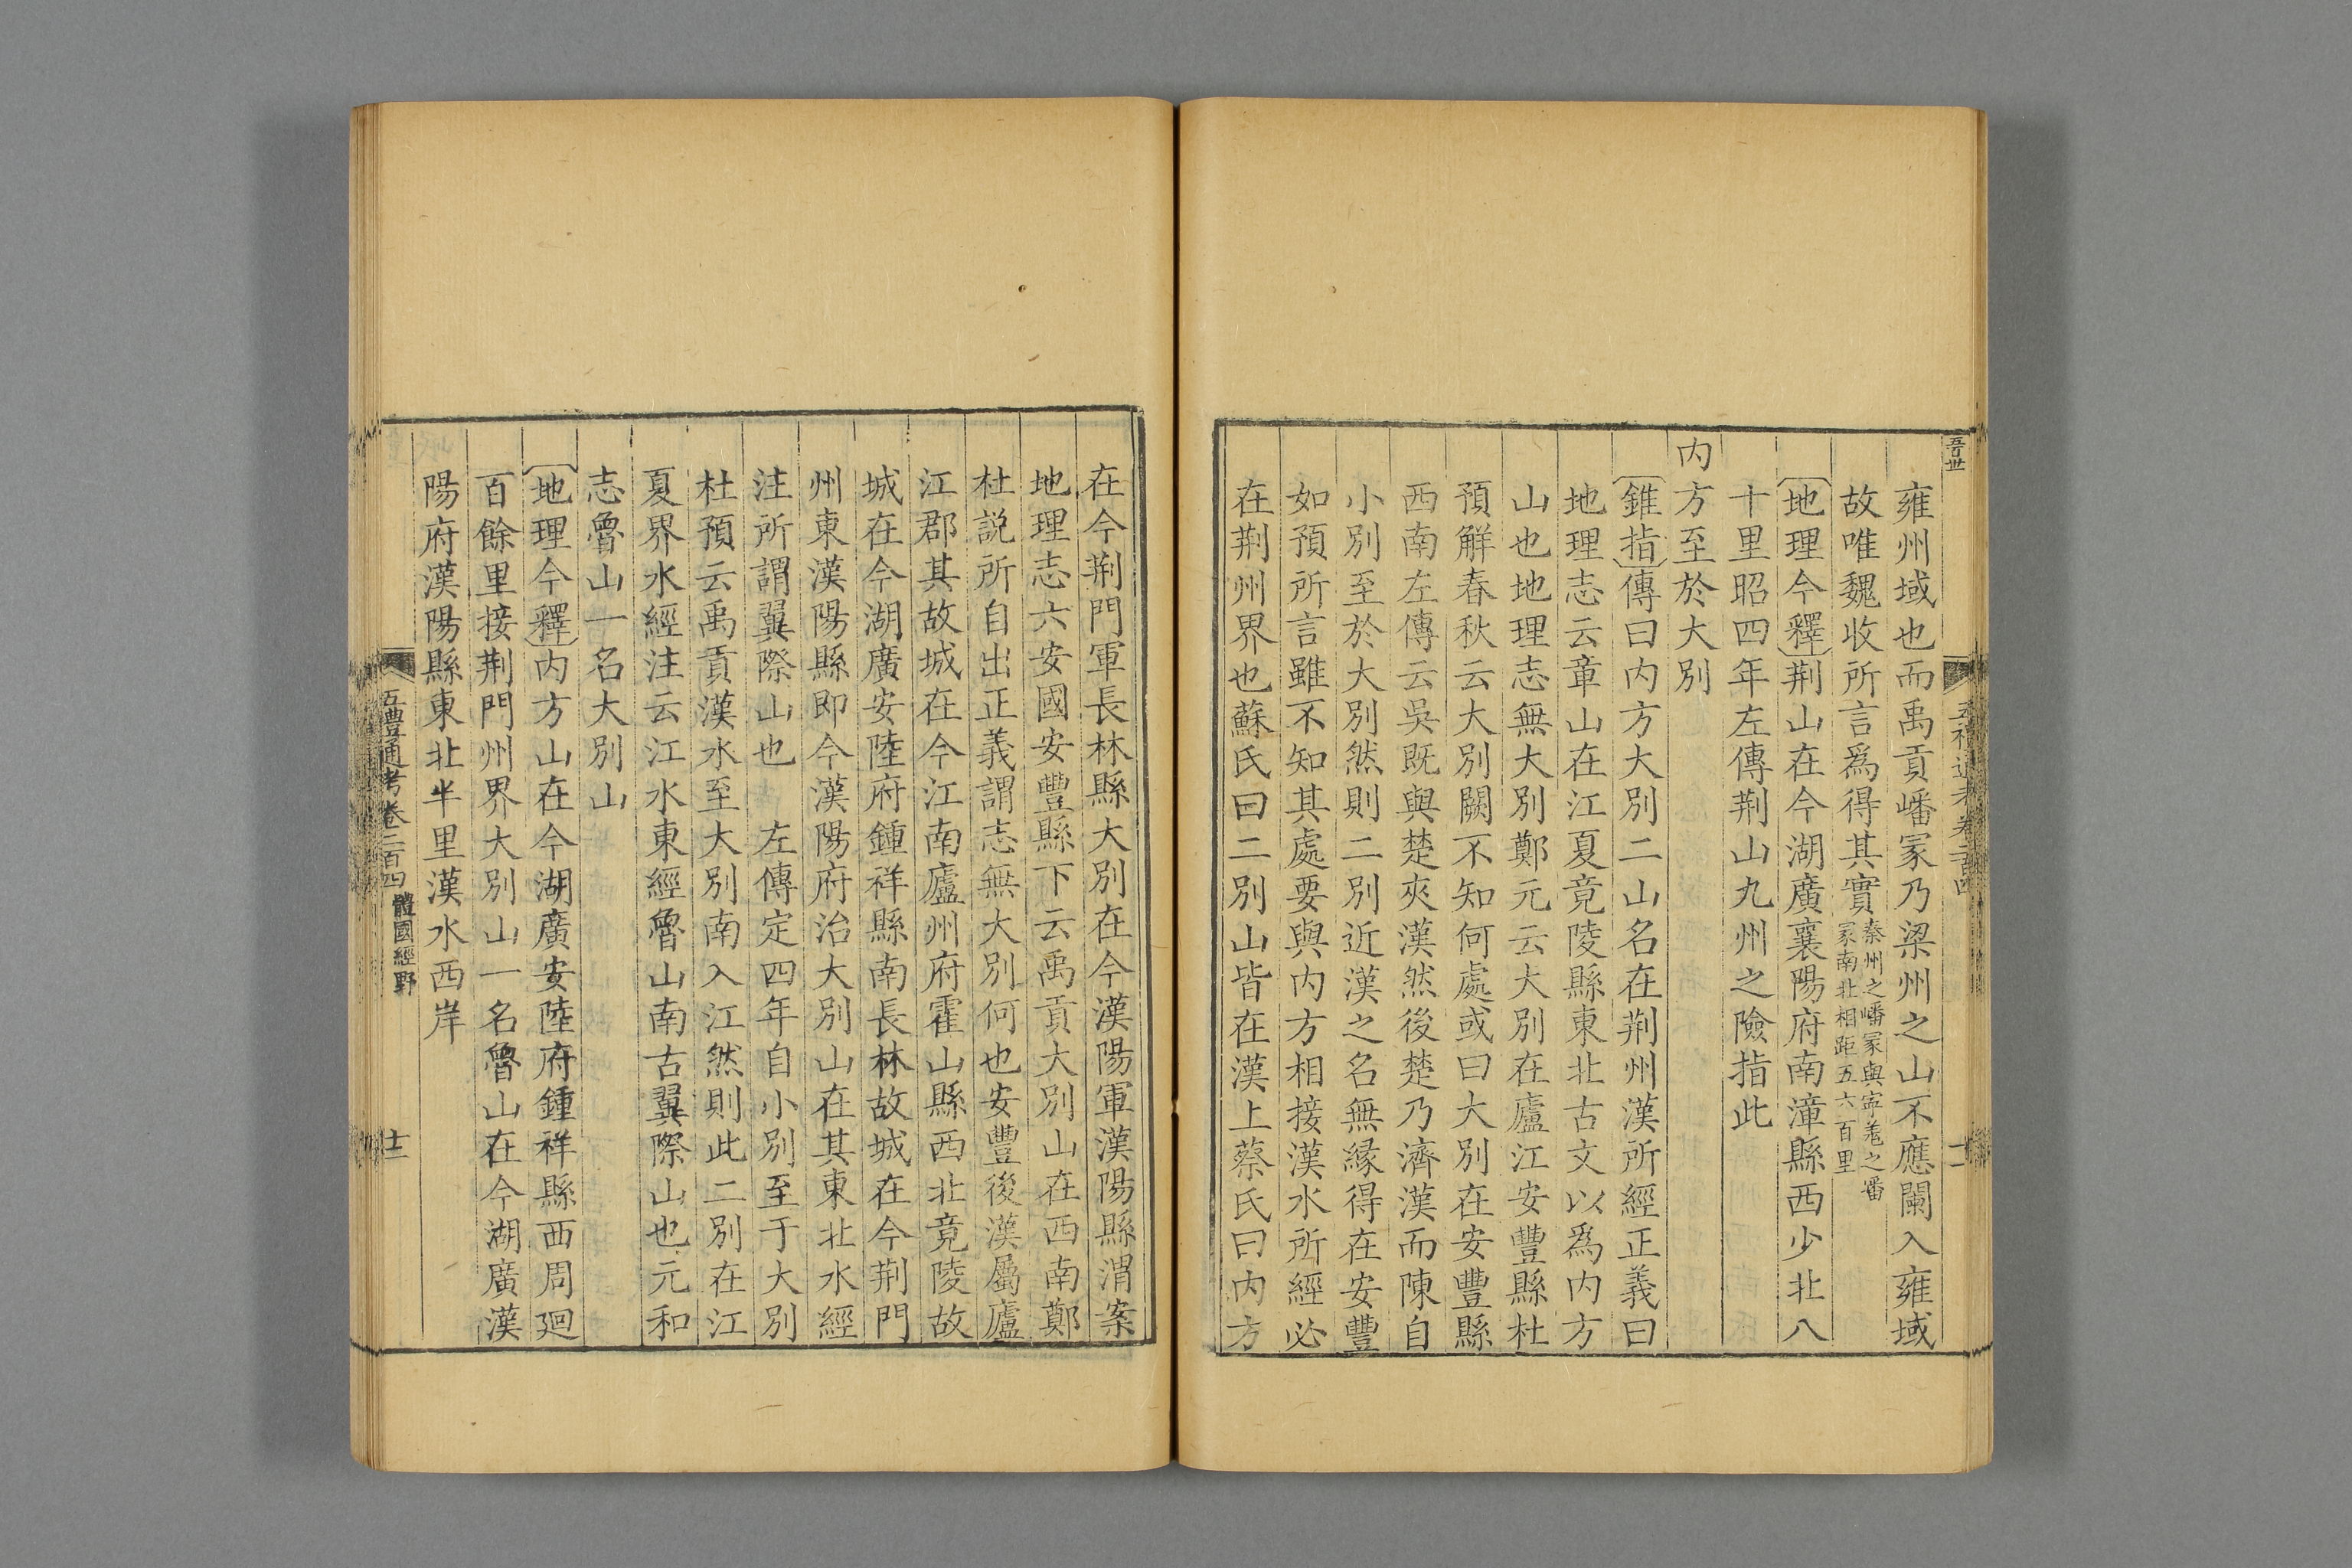 雍州域也而禹貢嶓冢乃梁州之山不應闌入雍域
故唯魏收所言爲得其實秦州之嶓冢與寧羗之嶓
冢南北相距五六百里
地理今釋荆山在今湖廣襄陽府南漳縣西少北八
十里昭四年左傳荆山九州之險指此
内方至於大別
錐指傳曰内方大別二山名在荆州漢所經正義曰
地理志云章山在江夏竟陵縣東北古文以爲内方
山也地理志無大別鄭元云大別在廬江安豐縣杜
預解春秋云大別闕不知何處或曰大別在安豐縣
西南左傳云吳既與楚夾漢然後楚乃濟漢而陳自
小別至於大別然則二別近漢之名無緣得在安豐
如預所言雖不知其處要與内方相接漢水所經必
在荆州界也蘇氏曰二別山皆在漢上蔡氏曰内方
在今荆門軍長林縣大別在今漢陽軍漢陽縣渭案
地理志六安國安豐縣下云禹貢大別山在西南鄭
杜説所自出正義謂志無大別何也安豐後漢屬廬
江郡其故城在今江南廬州府霍山縣西北竟陵故
城在今湖廣安陸府鍾祥縣南長林故城在今荆門
州東漢陽縣即今漢陽府治大別山在其東北水經
注所謂翼際山也　左傳定四年自小別至于大別
杜預云禹貢漢水至大別南入江然則此二別在江
夏界水經注云江水東經魯山南古翼際山也元和
志魯山一名大別山
地理今釋内方山在今湖廣安陸府鍾祥縣西周廻
百餘里接荆門州界大別山一名魯山在今湖廣漢
陽府漢陽縣東北半里漢水西岸
五豊通考卷二百四　體國經野　十二